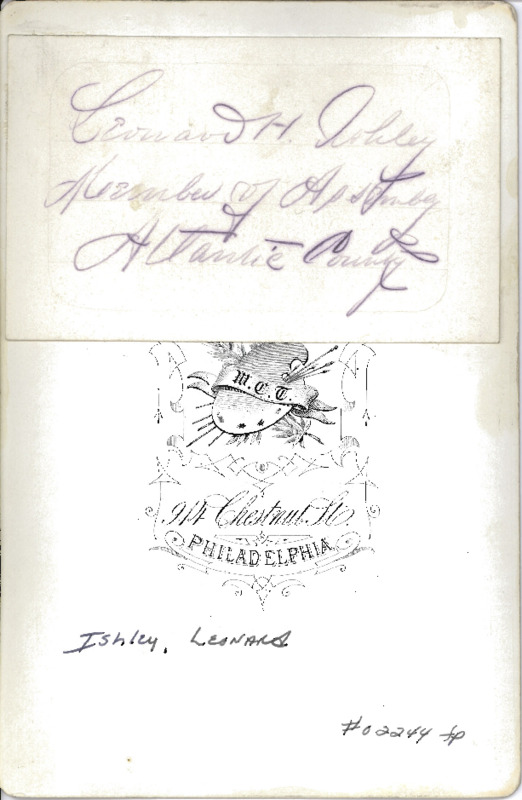 Leonard H. Ashley
Member of Assembly
Atlantic County
M.C.T.
914 Chestnut St
PHILADELPHIA
Ishley, Leonard
#02244 fp